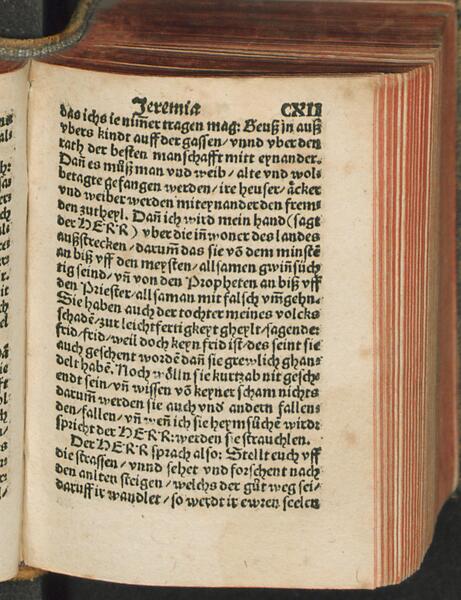 Jeremia CXII
das ichs ie nim̃er tragen mag: Geuß jn auß
vbers kindt auff der gassen / vnnd vber den
rath der besten manschafft mitt eynander.
Dañ es můß man vnd weib / alte vnd wol⸗
betagte gefangen werden / ire heuser / åcker
vnd weiber werden mit eynander den frem⸗
den zutheyl. Dañ ich wird mein hand (sagt
der HERR) vber die iñwoner des landes
außstrecken / darum̃ das sie võ dem minstẽ
an biß vff den meysten / allsamen gwiñsüch⸗
tig seind / vñ von den Propheten an biß vff
den Priester / allsaman mit falsch vm̃gehn.
Sie haben auch der tochter meines volcks
schadẽ / zur leichtfertigkeyt gheylt / sagende:
frid / frid / weil doch keyn frid ist / des seint sie
auch geschent wordẽ dañ sie grewlich ghan⸗
delt habẽ. Noch wölln sie kurtzab nit gesch⸗
endt sein / vñ wissen võ keyner scham nichts
darum̃ werden sie auch vnd andern fallen⸗
den / fallen / vñ weñ ich sie heymsůchẽ wird:
spricht der HERR: werden sie strauchlen.
Der HERR sprach also: Stellt euch vff
die strassen / vnnd sehet vnd forschent nach
den anlten steigen / welchs der gůt weg sei /
darauff ir wandlet / so werdt ir ewren seelen